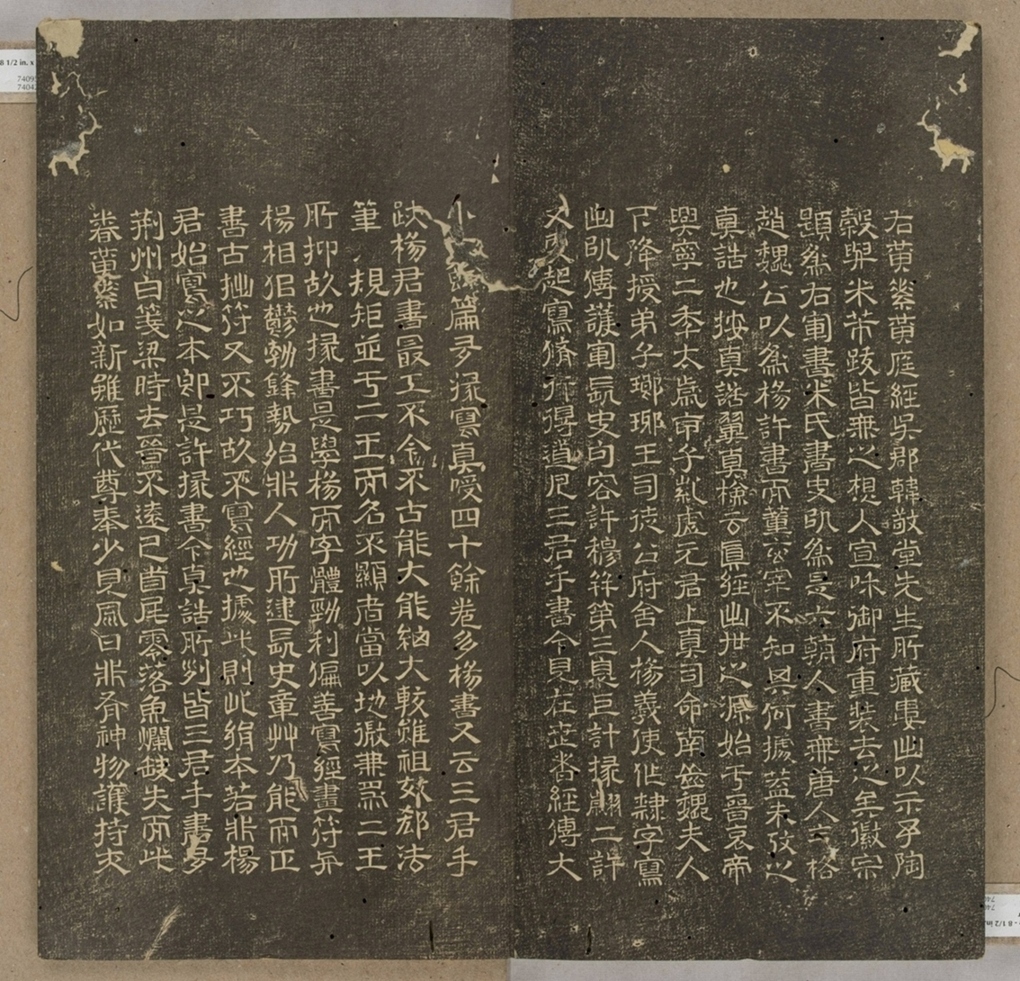 右黃素黃庭經吳郡韓敬堂先生所藏婁出以示予陶
穀與米芾跋皆無之想入宣咊御府重裝去之矣徽宗
題為右軍書米氏書史以為是六朝人書無唐人一格
趙魏公以為楊許書而董玄宰不知其何據蓋未攷之
真誥也按真誥翼真檢云真經出世之源始于晉哀帝
興寧二年太歲甲子紫虛元君上真司命南嶽魏夫人
下降授弟子瑯琊王司徒公府舍人楊羲使作隸字寫
出以傳護軍長史句容許穆并第三息上計掾翽二許
又更起寫脩行得道凡三君手書今見在世者經傳大
小篇多掾寫真授四十餘卷多楊書又云三君手
跡楊君書最工不今不古能大能細大較雖祖效郗法
筆規矩並于二王而名不顯者當以地微兼為二王
所抑故也掾書是學楊而字體勁利偏善寫經畫符與
楊相似鬱勃鋒勢殆非人功所逮長史章艸乃能而正
書古拙符又不巧故不寫經也據此則此絹本若非楊
君始寫之本即是許掾書今真誥所列皆三君手書多
荊州白箋梁時去晉不遠已首尾零落魚爛缺失而此
卷黃素如新雖歷代尊奉少見風日非有神物護持夾